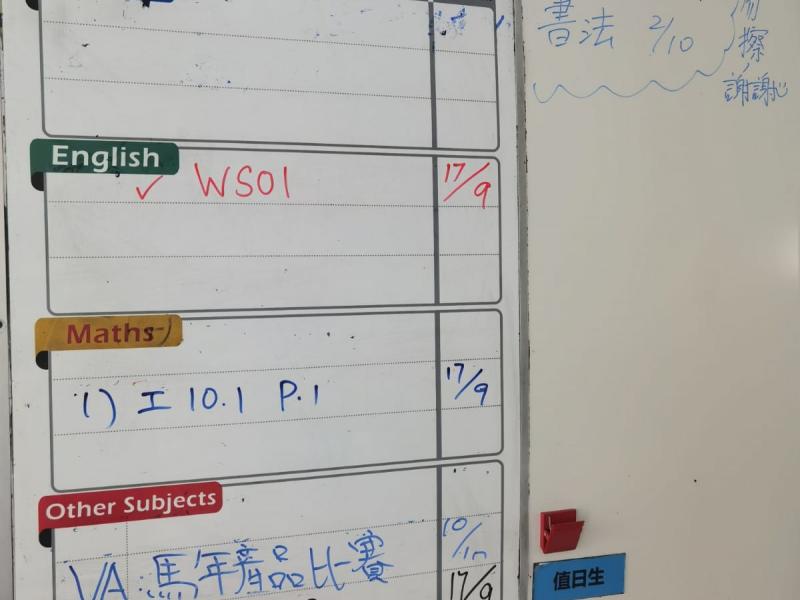 書法 2/10
勿擦,謝謝
English
✓ WS01 17/9
Maths
1) 工 10.1 P.1 17/9
Other Subjects
VA: 馬年產品比賽 10/10
17/9
值日生